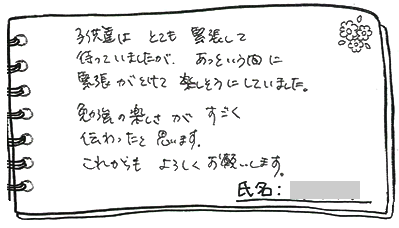 子供達は とても 緊張して
待っていましたが、あっという間に
緊張がとけて 楽しそうにしていました。
勉強の楽しさ が すごく
伝わったと思います。
これからも よろしくお願いします。
氏名: